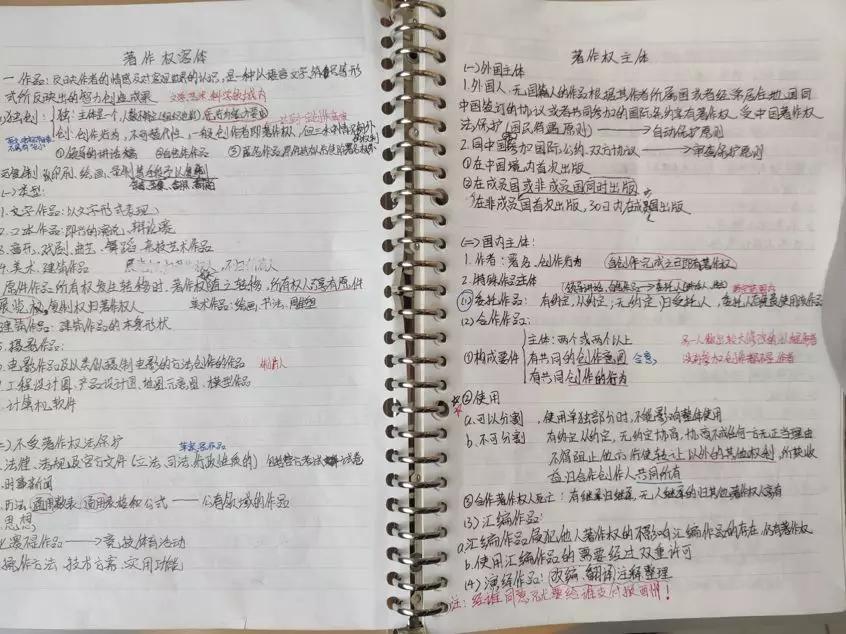 著作权客体
一 作品：反映作者的情感及对客观世界的认识，是一种以语言文字、符号等形
式所反映出的智力创造成果 文学艺术、科学领域内
独：主体是个人
创：创作行为，不可替代性，一般创作者即著作权人，但三种情形例外
①领导的讲话稿 ②自传体作品
复制 印刷、绘画、录制
(一)类型：
1.文字作品：以文字形式表现
2.口述作品：即兴的演说、辩论等
3.音乐、戏剧、曲艺、舞蹈、杂技艺术作品
4.美术、建筑作品
原件作品所有权发生转移时，著作权
展览权，复制权归著作权人 美术作品：绘画、书法、雕塑
建筑作品：建筑作品的本身形状
5.摄影作品：
6.电影作品及以类似摄制电影的方法创作的作品 制片人
7.工程设计图、产品设计图、地图、示意图、模型作品
计算机软件
(二)不受著作权法保护
法律、法规及官方文件（立法、司法、行政性质的）
时事新闻
历法、通用数表、通用表格和公式——公有领域的作品
思想
竞技体育活动
操作方法、技术方案、实用功能
著作权主体
(一)外国主体
1.外国人、无国籍人的作品根据其作者所属国或者经常居住地国同
中国签订的协议或者共同参加的国际条约享有著作权，受中国著作权
法保护（国民待遇原则）——→自动保护原则
2.同中国参加国际公约、双方协议——→审查保护原则
①在中国境内首次出版
②在成员国或非成员国同时出版
在非成员国首次出版，30日内在成员国出版
(二)国内主体：
1.作者：署名、创作行为 自创作完成之日即有著作权
2.特殊作品主体
(1)委托作品：有约定，从约定；无约定，归受托人，
(2)合作作品：
主体：两个或两个以上
①构成要件 有共同的创作意图 合意
有共同创作的行为
没参加创作都不是作者
②使用
a.可以分割，使用单独部分时，不能影响整体使用
b.不可分割 有约定从约定，无约定协商，协商不成任何一方无正当理由
不得阻止他方行使转让以外的其他权利，所获收
益归合作创作人共同所有
③合作著作权人死亡：有继承归继承，无人继承的归其他著作权人享有
(3)汇编作品：
a.汇编作品侵犯他人著作权的不影响汇编作品的存在，仍有著作权
b.使用汇编作品的需要经过双重许可
(4)演绎作品：改编、翻译、注释、整理
注：经谁同意就要给谁支付报酬！